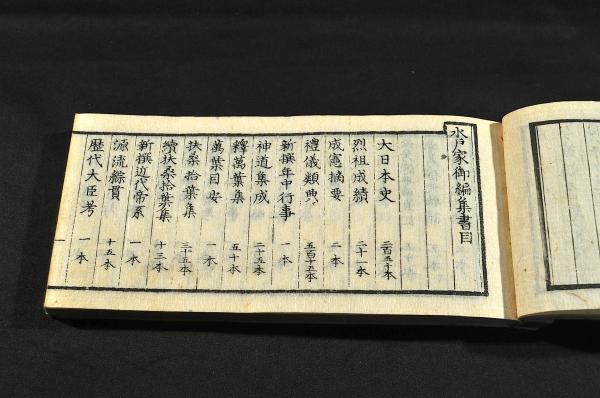 水戸家御編集書目
大日本史 二百五十本
烈祖成績 二十一本
成憲摘要 二本
禮儀類典 五百十五本
新撰年中行事 一本
神道集成 二十五本
釋萬葉集 五十本
萬葉目安 一本
扶桑拾葉集 三十五本
續扶桑拾葉集 十三本
新撰近代帝系 一本
源流綜貫 十五本
歴代大臣考 一本
一